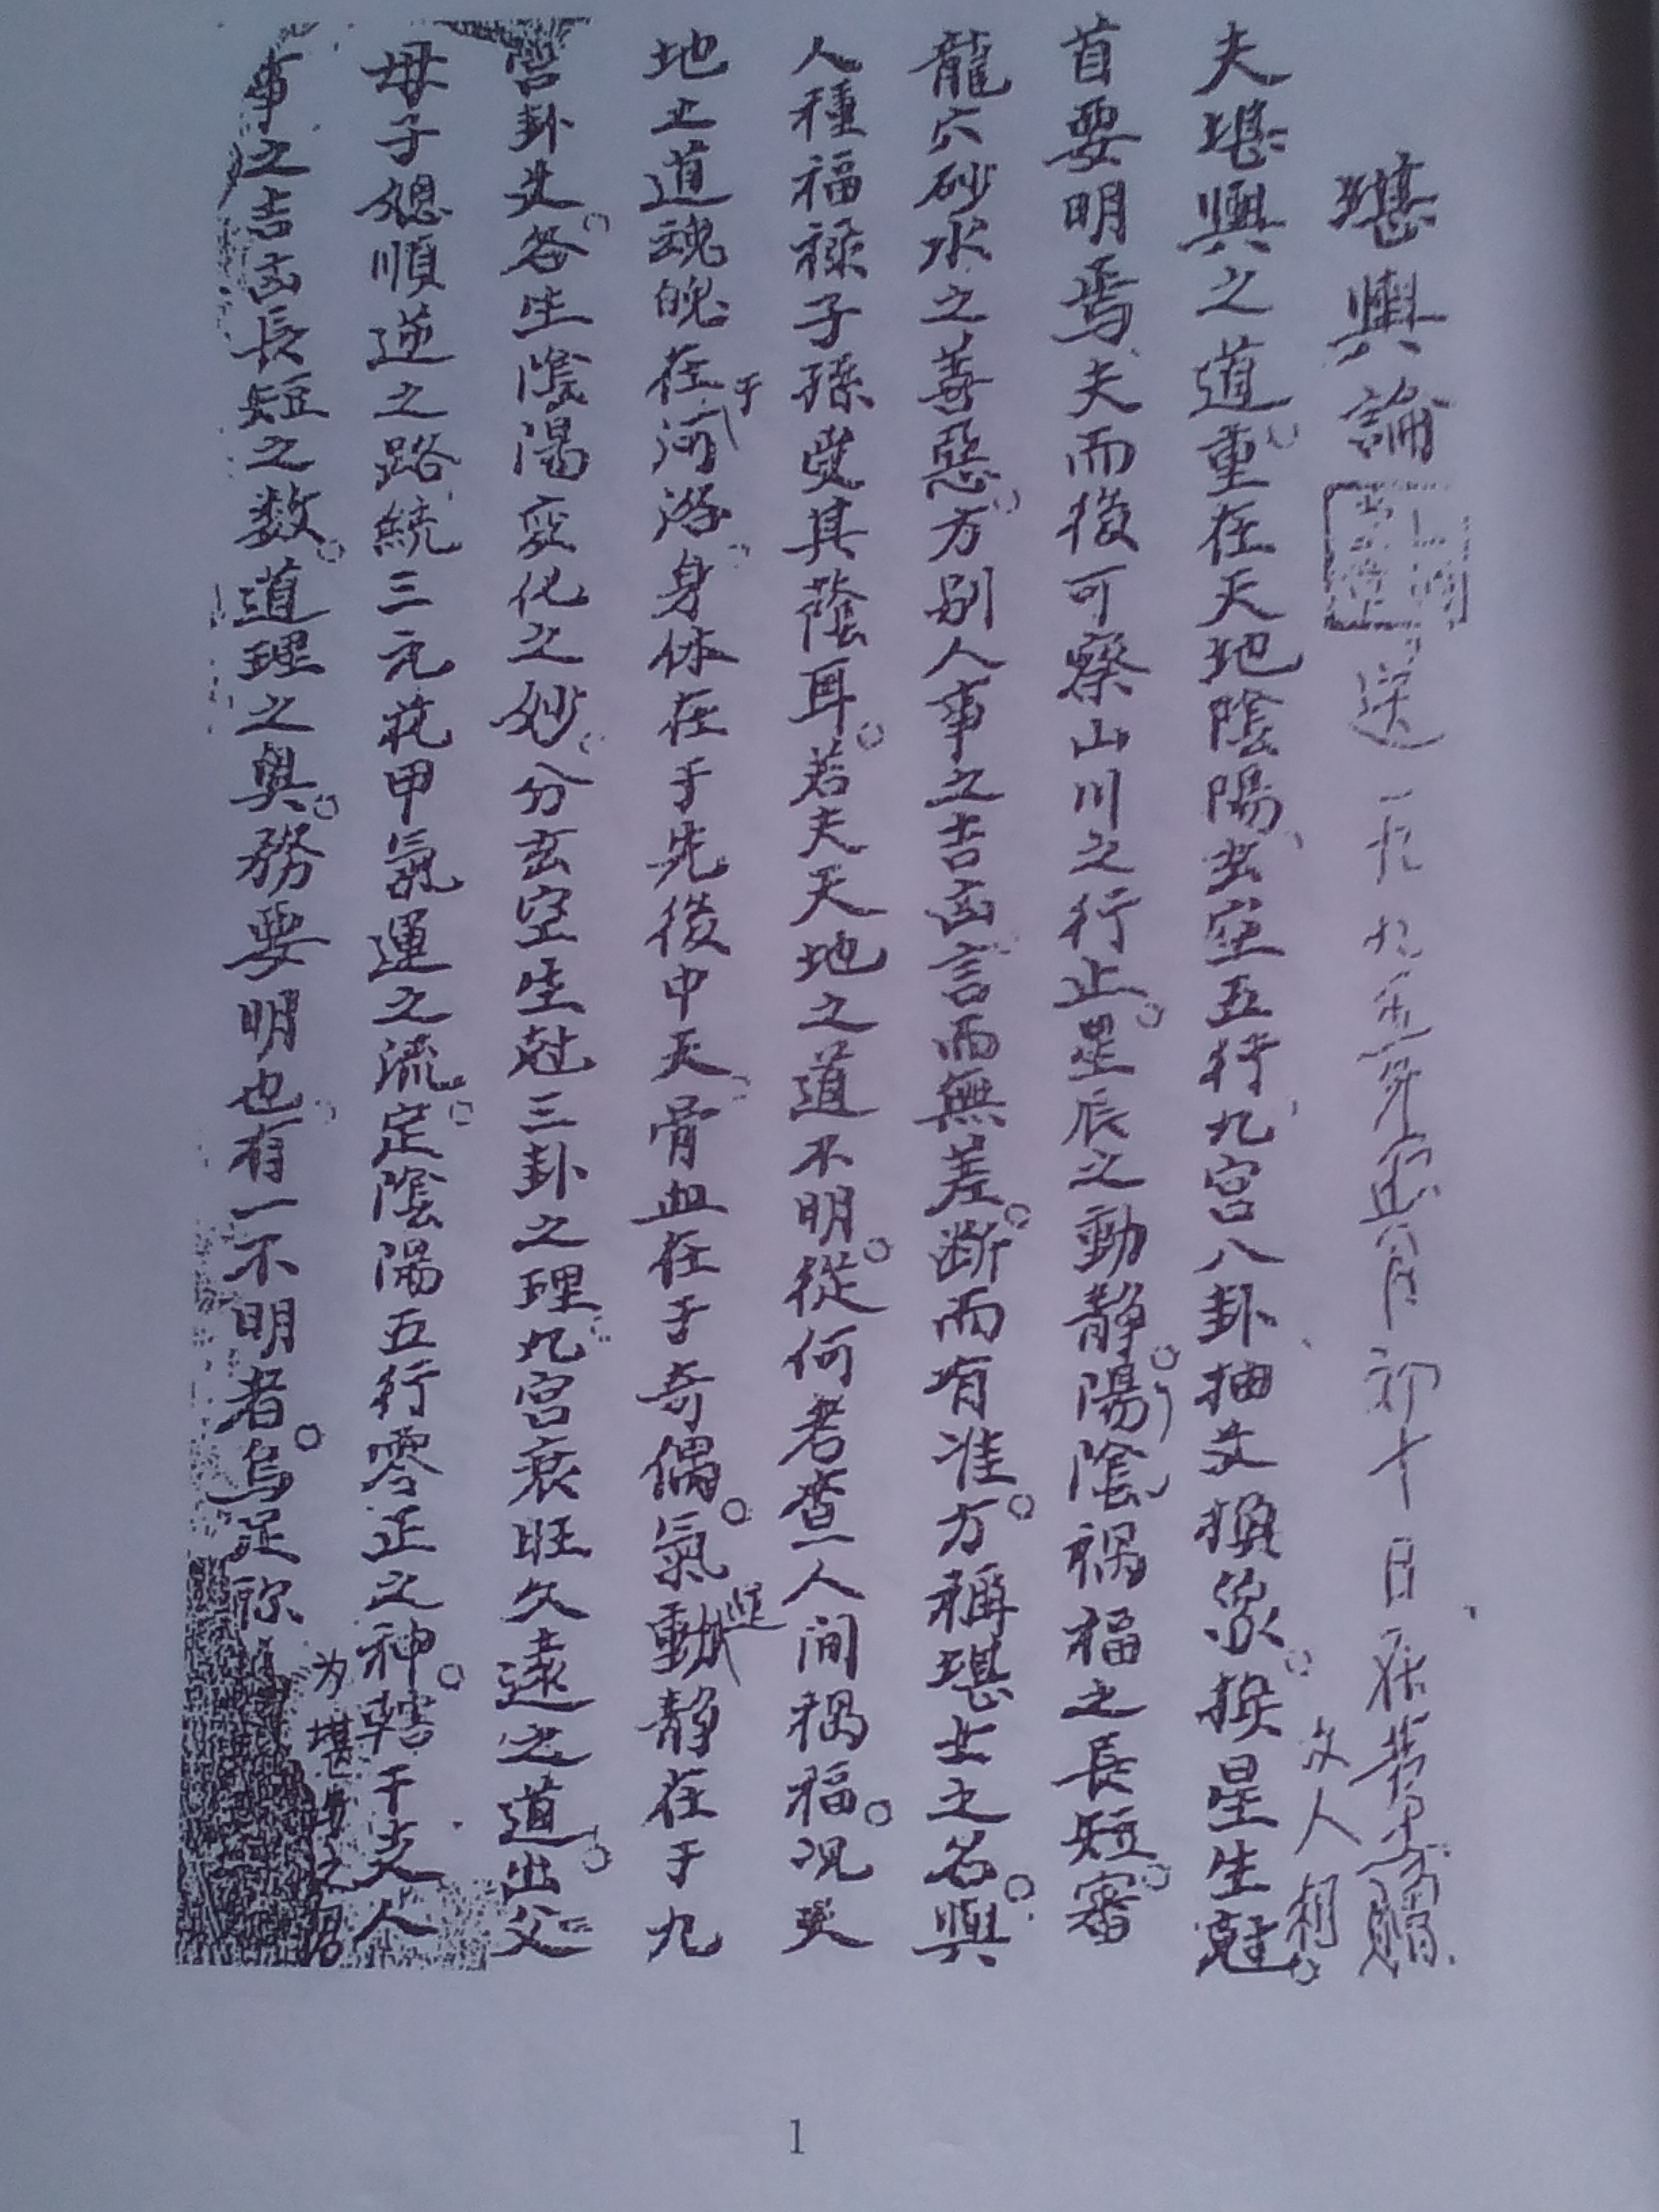 堪輿論
送一九九五年六月初十日在
文人相
夫堪輿之道重在天地陰陽、玄空五行、九宮八卦、抽爻換象。挨星生尅。
首要明焉、夫而後可察山川之行止。星辰之動静。陽陰禍福之長短。審
龍穴砂水之善惡、方別人事之吉凶、言而無差。断而有准。方稱堪士之名。與
人種福禄子孫受其蔭耳。若夫天地之道不明。從何考查人间禍福。况夫
地之道魂魄在于河洛、身体在于先後中天、骨血在于奇偶。氣動静在于九
宮卦爻。各生陰陽変化之妙。分玄空生尅三卦之理。九宮衰旺久遠之道。出父
母子媳順逆之路統三元花甲氣運之流。定陰陽五行零正之神。轄干支人
事之吉凶長短之数。道理之奥。務要明也、有一不明者。烏足称
为堪
1